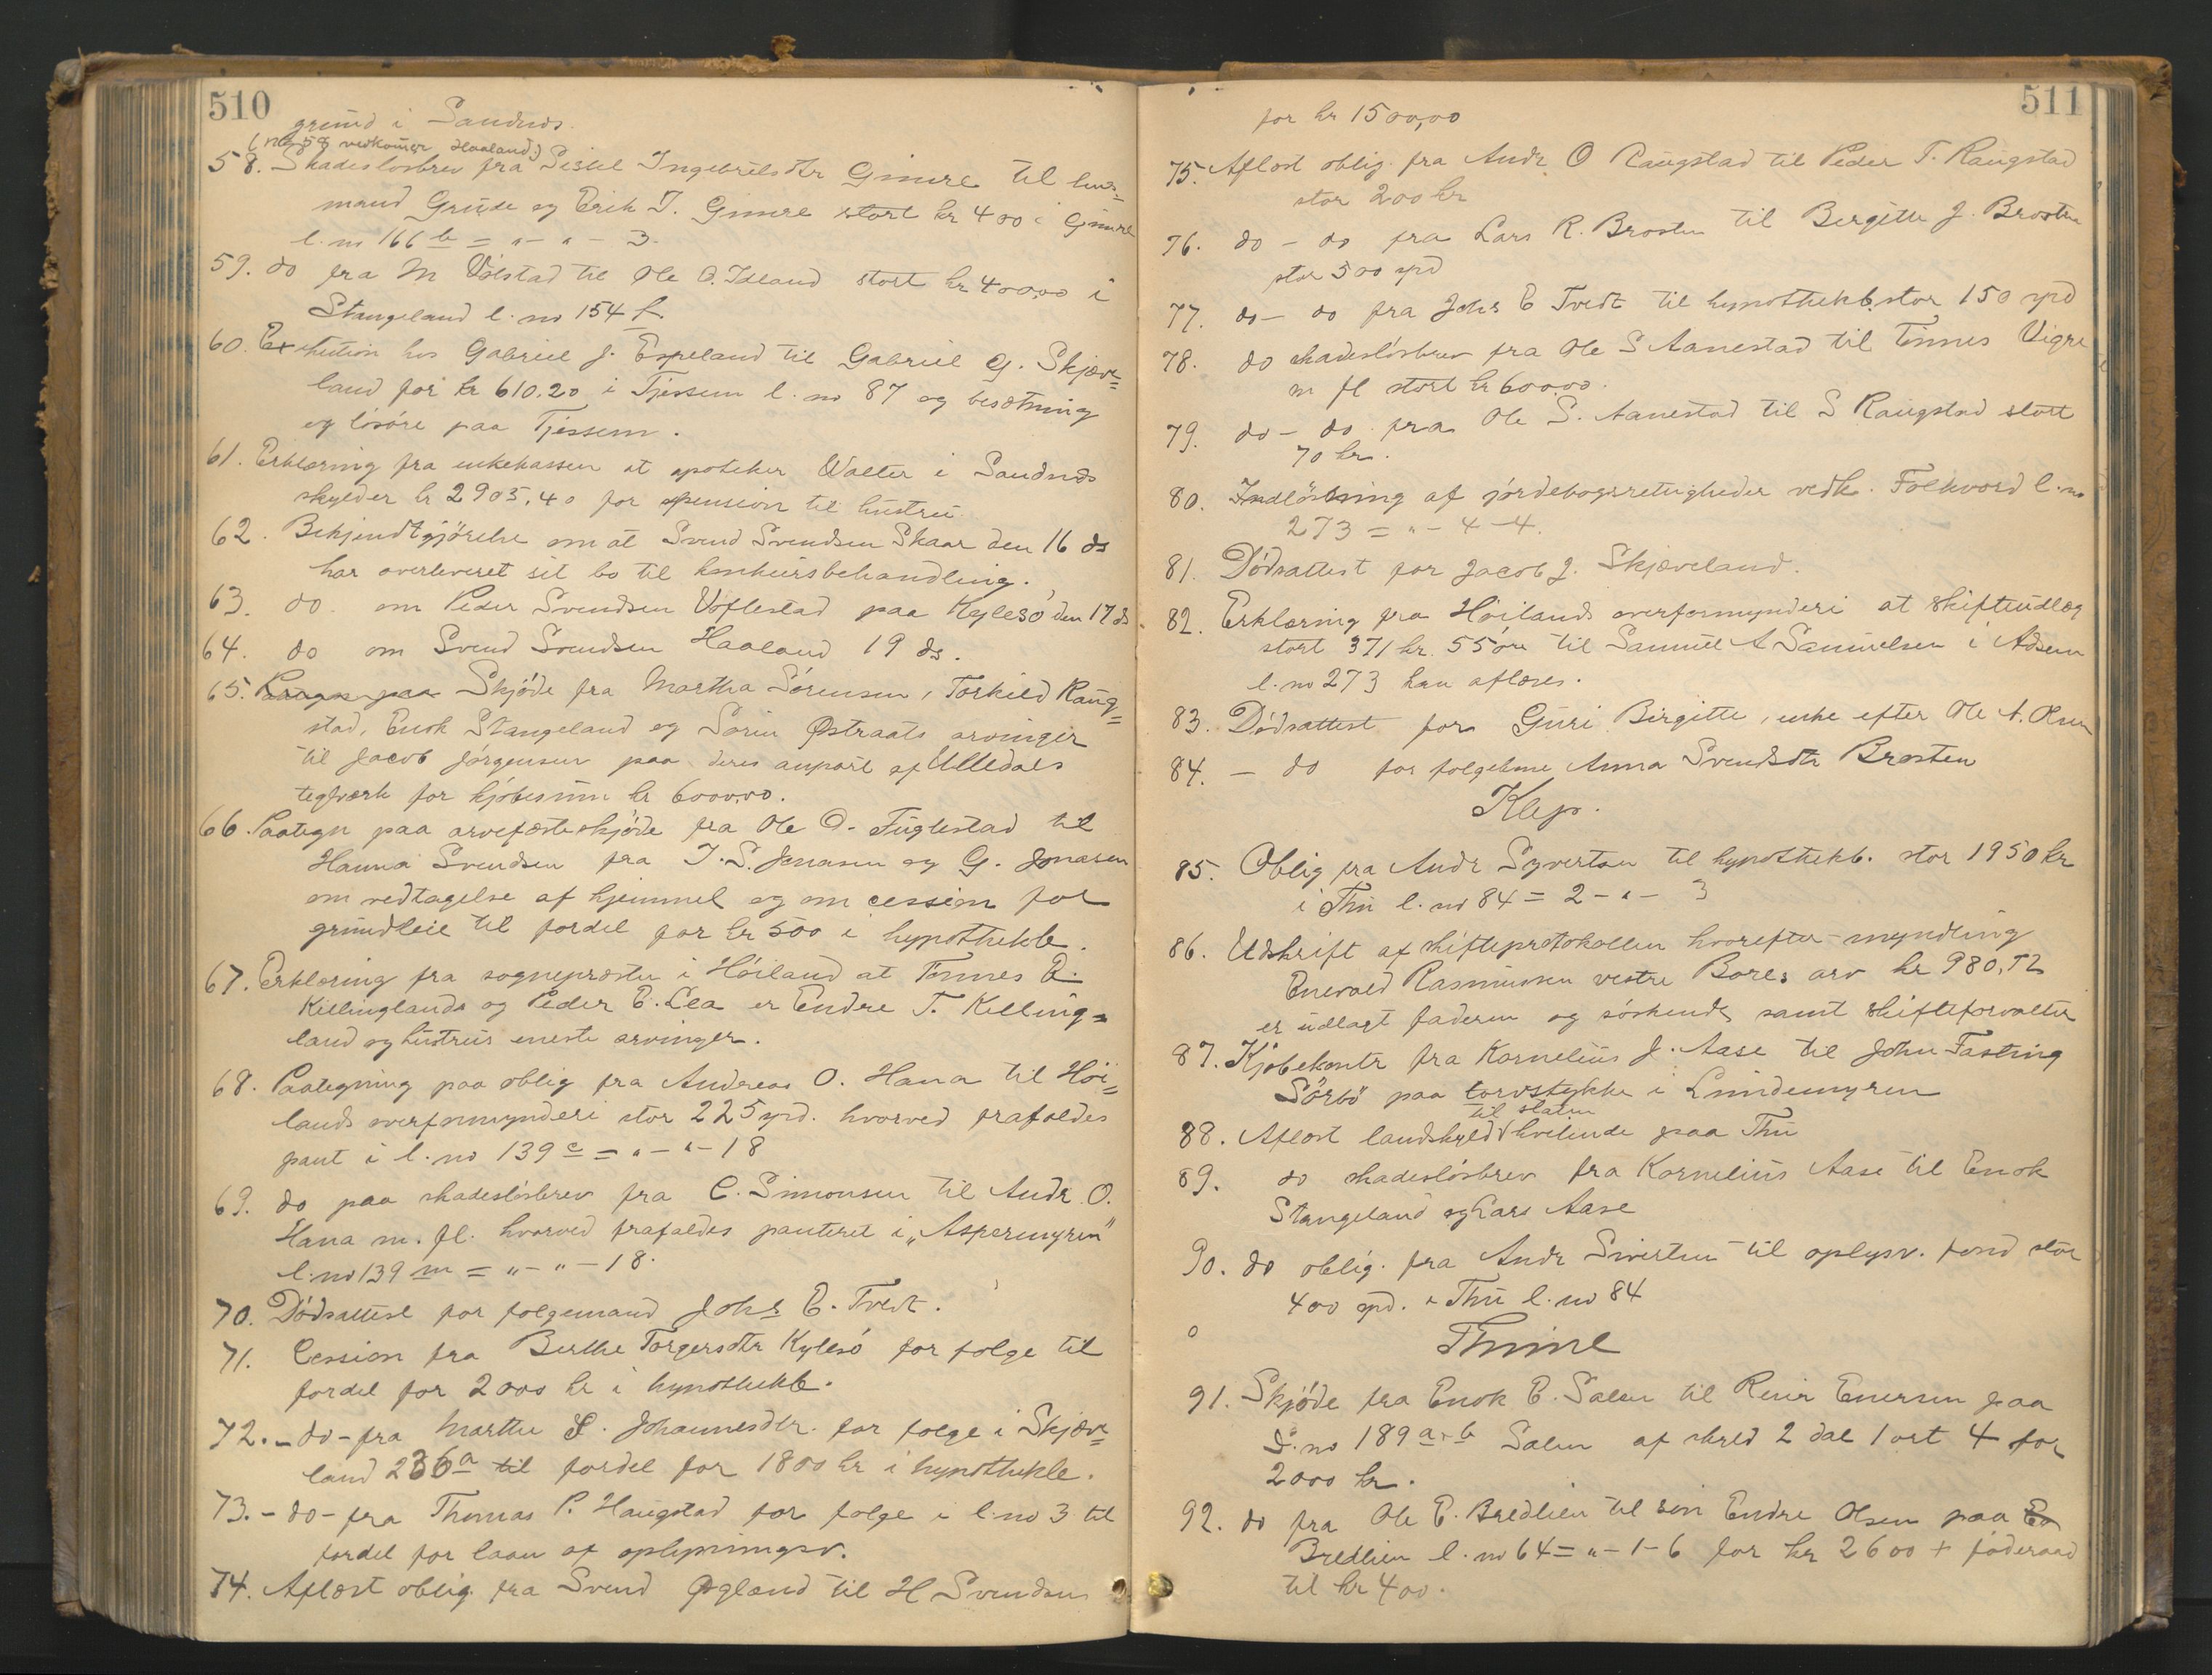 510
grund i Sandnes.
(No 58 vedkommer Haaland)
58. Skadeslosbrev fra Sissel Ingebretsdtr Gimre til hus=
mand Grude og Erik T. Gimre stort kr 400 i Gimre
l. no 166 b = „ - „ - 3.
59. do fra M Volstad til Ole O. Idland stort kr 400,00 i
Stangeland l. no 154 f.
60. Exekution hos Gabriel J. Espeland til Gabriel G. Skjæve=
land for kr 610.20 i Tjessem l. no 87 og besætning
og løsøre paa Tjessem.
61. Erklæring fra enkekassen at apoteker Walter i Sandnes
skylder kr 2905,40 for pension til hustru.
62. Bekjendtgjørelse om at Svend Svendsen Skaar den 16 ds
har overleveret sit bo til konkursbehandling.
63. do. om Peder Svendsen Voflestad paa Kylesø den 17 ds
64. do om Svend Svendsen Haaland 19 ds.
65. Skjøde fra Martha Sørensen, Torkild Raug=
stad, Enok Stangeland og Sørin Østraats arvinger
til Jacob Jørgensen paa deres anpart af Ulledals
teglværk for kjøbesum kr 6000,00.
66. Paategn paa arvefæsteskjøde fra Ole O. Fuglestad til
Hanna Svendsen fra T. S. Jonasen og G. Jonasen
om vedtagelse af hjemmel og om cession for
grundleie til fordel for kr 500 i hypothekb.
67. Erklæring fra sognepresten i Høiland at Tønnes E.
Killingland og Peder E. Lea er Endre T. Killing=
land og hustrus eneste arvinger.
68. Paategning paa oblig fra Andreas O. Hana til Høi=
lands overformynderi stor 225 spd. hvorved frafaldes
pant i l. no 139 c = „ - „ - 18
69. do paa skadesløsbrev fra C. Simonsen til Andr. O.
Hana m. fl. hvorved frafaldes panteret i „Aspemyren"
l. no 139 m = „ - „ - 18.
70. Dødsattest for folgemand Johs E. Tvedt.
71. Cession fra Berthe Torgersdtr Kylesø for folge til
fordel for 2000 kr i hypothekb.
72. - do - fra Marthe S. Johannesdtr. for folge i Skjæve=
land 236 a til fordel for 1800 kr i hypothekb.
73. - do - fra Thomas P. Haugstad for folge i l. no 3 til
fordel for laan af oplysningsv.
74. Aflæst oblig. fra Svend Øgland til H Svendsen
511
for kr 1500,00
75. Aflæst oblig. fra Andr O Raugstad til Peder T. Raugstad
stor 200 kr
76. do - do fra Lars R. Brosten til Bergitte J. Brosten
stor 300 spd
77. do - do fra Johs E Tvedt til hypothekb. stor 150 spd
78. do skadesløsbrev fra Ole S Aanestad til Tønnes Vigre
m fl stort kr 600,00.
79. do - do fra Ole S. Aanestad til S Raugstad stort
70 kr.
80. Indløsning af jordebogsrettigheder vedk. Folkvord l. no
273 = „ - 4 - 4.
81. Dødsattest for Jacob J. Skjæveland.
82. Erklæring fra Høilands overformynderi at skifteudlæg
stort 371 kr. 55 øre til Samuel A Samuelsen i Adsem
l. no 273 kan aflæses.
83. Dødsattest for Guri Birgitte, enke efter Ole A. Olsen
84. - do for folgekone Anna Svendsdtr Brosten
Klep.
85. Oblig fra Andr Syvertsen til hypothekb. stor 1950 kr
i Thu l. no 84 = 2 - „ - 3
86. Udskrift af skifteprotokollen hvorefter myndling
Enevald Rasmussen vestre Bores arv kr 980,52
er udlagt faderen og søskende samt skifteforvalter
87. Kjøbekontr fra Kornelius J. Aase til John Fasting
Sørbø paa torvstykke i Lindemyren
88. Aflæst landskyld til staten hvilende paa Thu
89. do skadesløsbrev fra Kornelius Aase til Enok
Stangeland og Lars Aase
90. do oblig. fra Andr Sivertsen til oplysv. fond stor
400 spd. i Thu l. no 84
Thime
91. Skjøde fra Enok E. Salen til Reier Enersen paa
L. no 189 a, b Salen af skyld 2 dal 1 ort 4 for
2000 kr.
92. do fra Ole E. Bredlien til søn Endre Olsen paa
Bredlien l. no 64 = „ - 1 - 6 for kr 2600 + føderaad
til kr 400.